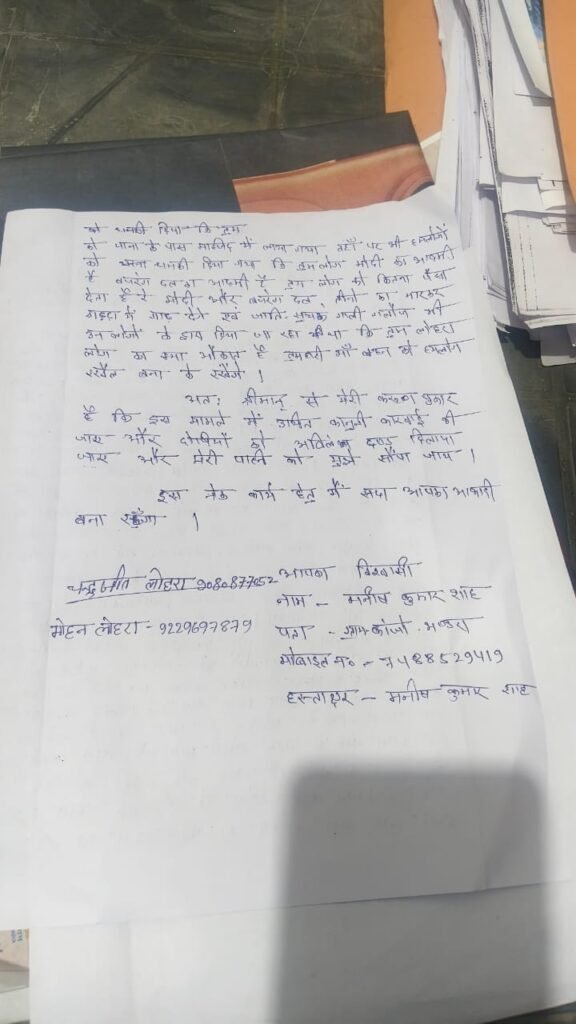 को धमकी दिया कि तुम
को थाना के पास मस्जिद में लाया गया वहाँ पर भी हमलोगों
को धमकी दिया गया कि तुम लोग मोदी का आदमी
है बजरंग दल का आदमी है तुम लोग को कितना पैसा
देता है रे मोदी और बजरंग दल, का मारकर
में गाड़ देंगे एवं जाति सूचक गाली गलौज भी
उन लोगों के द्वारा दिया जा रहा था कि तुम लोहरा
लोग का क्या औकात है तुम्हारी माँ बहन को हमलोग
रखैल बना के रखेंगे ।
अतः श्रीमान् से मेरी करूणा पुकार
है कि इस मामले में उचित कानूनी कारवाई की
जाए और दोषियों को अविलंब दण्ड दिलाया
जाए और मेरी पत्नि को मुझे सौंपा जाय ।
इस नेक कार्य हेतु मैं सदा आपका आभारी
बना रहुँगा ।
आपका विश्वासी
नाम - मनीष कुमार शाह
पता - ग्राम-कांजो
मोबाइल नं० - 7488529419
हस्ताक्षर - मनीष कुमार शाह
चन्द्रजीत लोहरा
मोहन लोहरा - 9229697879